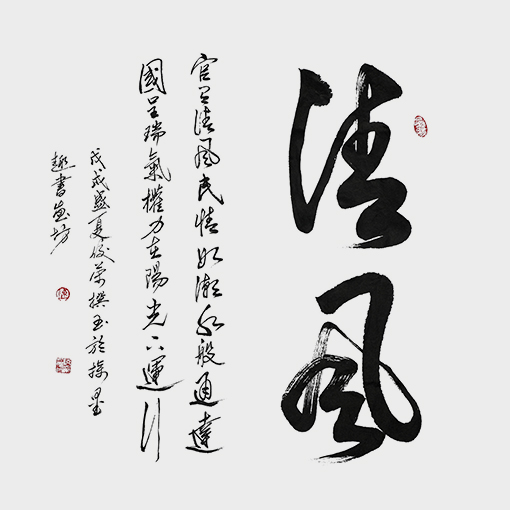 清風
官清風民情如潮水般通達
國呈瑞氣權力在陽光下運行
戊戌盛夏俊榮撰於墨
趣書畫坊